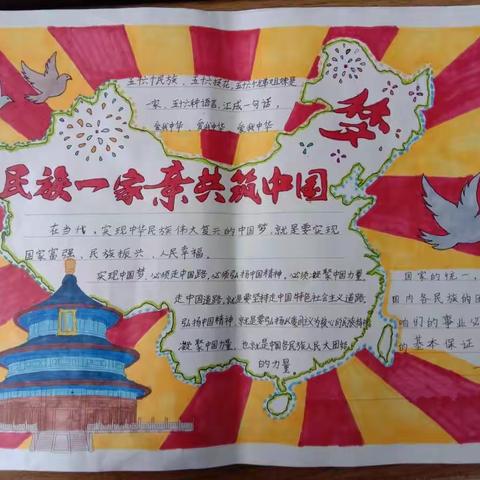 五十六个民族、五十六枝花,五十六个兄弟姐妹是
一家,五十六种语言,汇成一句话,
爱我中华、爱我中华、爱我中华
梦
民族一家亲共筑中国
在当代,实现中华民族伟大复兴的中国梦,就是要实现
国家富强、民族振兴,人民幸福。
实现中国梦,必须走中国路,必须弘扬中国精神,必须凝聚中国力量
走中国道路,就是要坚持走中国特色社会主义道路
弘扬中国精神,就是要弘扬以爱国主义为核心的民族精神
凝聚中国力量,也就是中国各民族人民大团结
的力量
国家的统一,
国内各民族的团
咱们的事业必
的基本保证